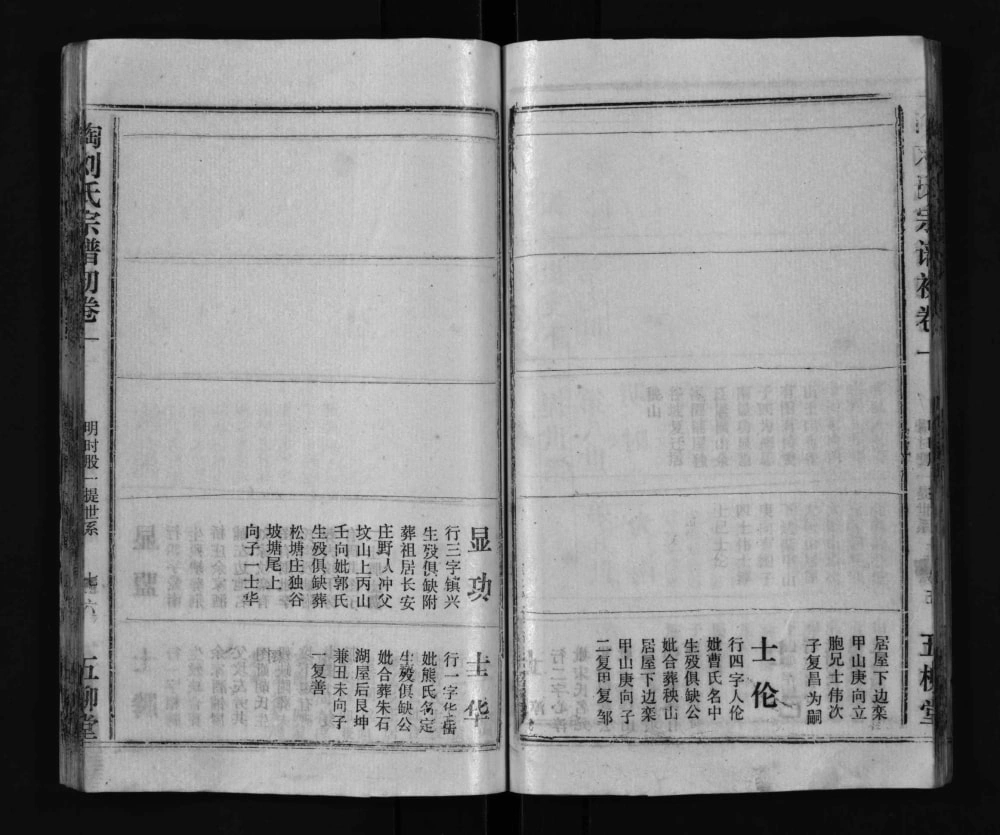 宗谱初卷一
五柳堂
居屋下边栾
甲山庚向立
胞兄士伟次
子复昌为嗣
士伦
行四字人伦
妣曹氏名中
生殁俱缺公
妣合葬秧山
居屋下边栾
甲山庚向子
二复甲复邹
显功
行三字镇兴
生殁俱缺附
葬祖居长安
庄野人冲父
坟山上丙山
壬向妣郭氏
生殁俱缺葬
松塘庄独谷
坡塘尾上
向子一士华
士华
行一字华岳
妣熊氏名定
生殁俱缺公
妣合葬朱石
湖屋后艮坤
兼丑未向子
一复善
陶刘氏宗谱初卷一
明时股一提世系
五柳堂